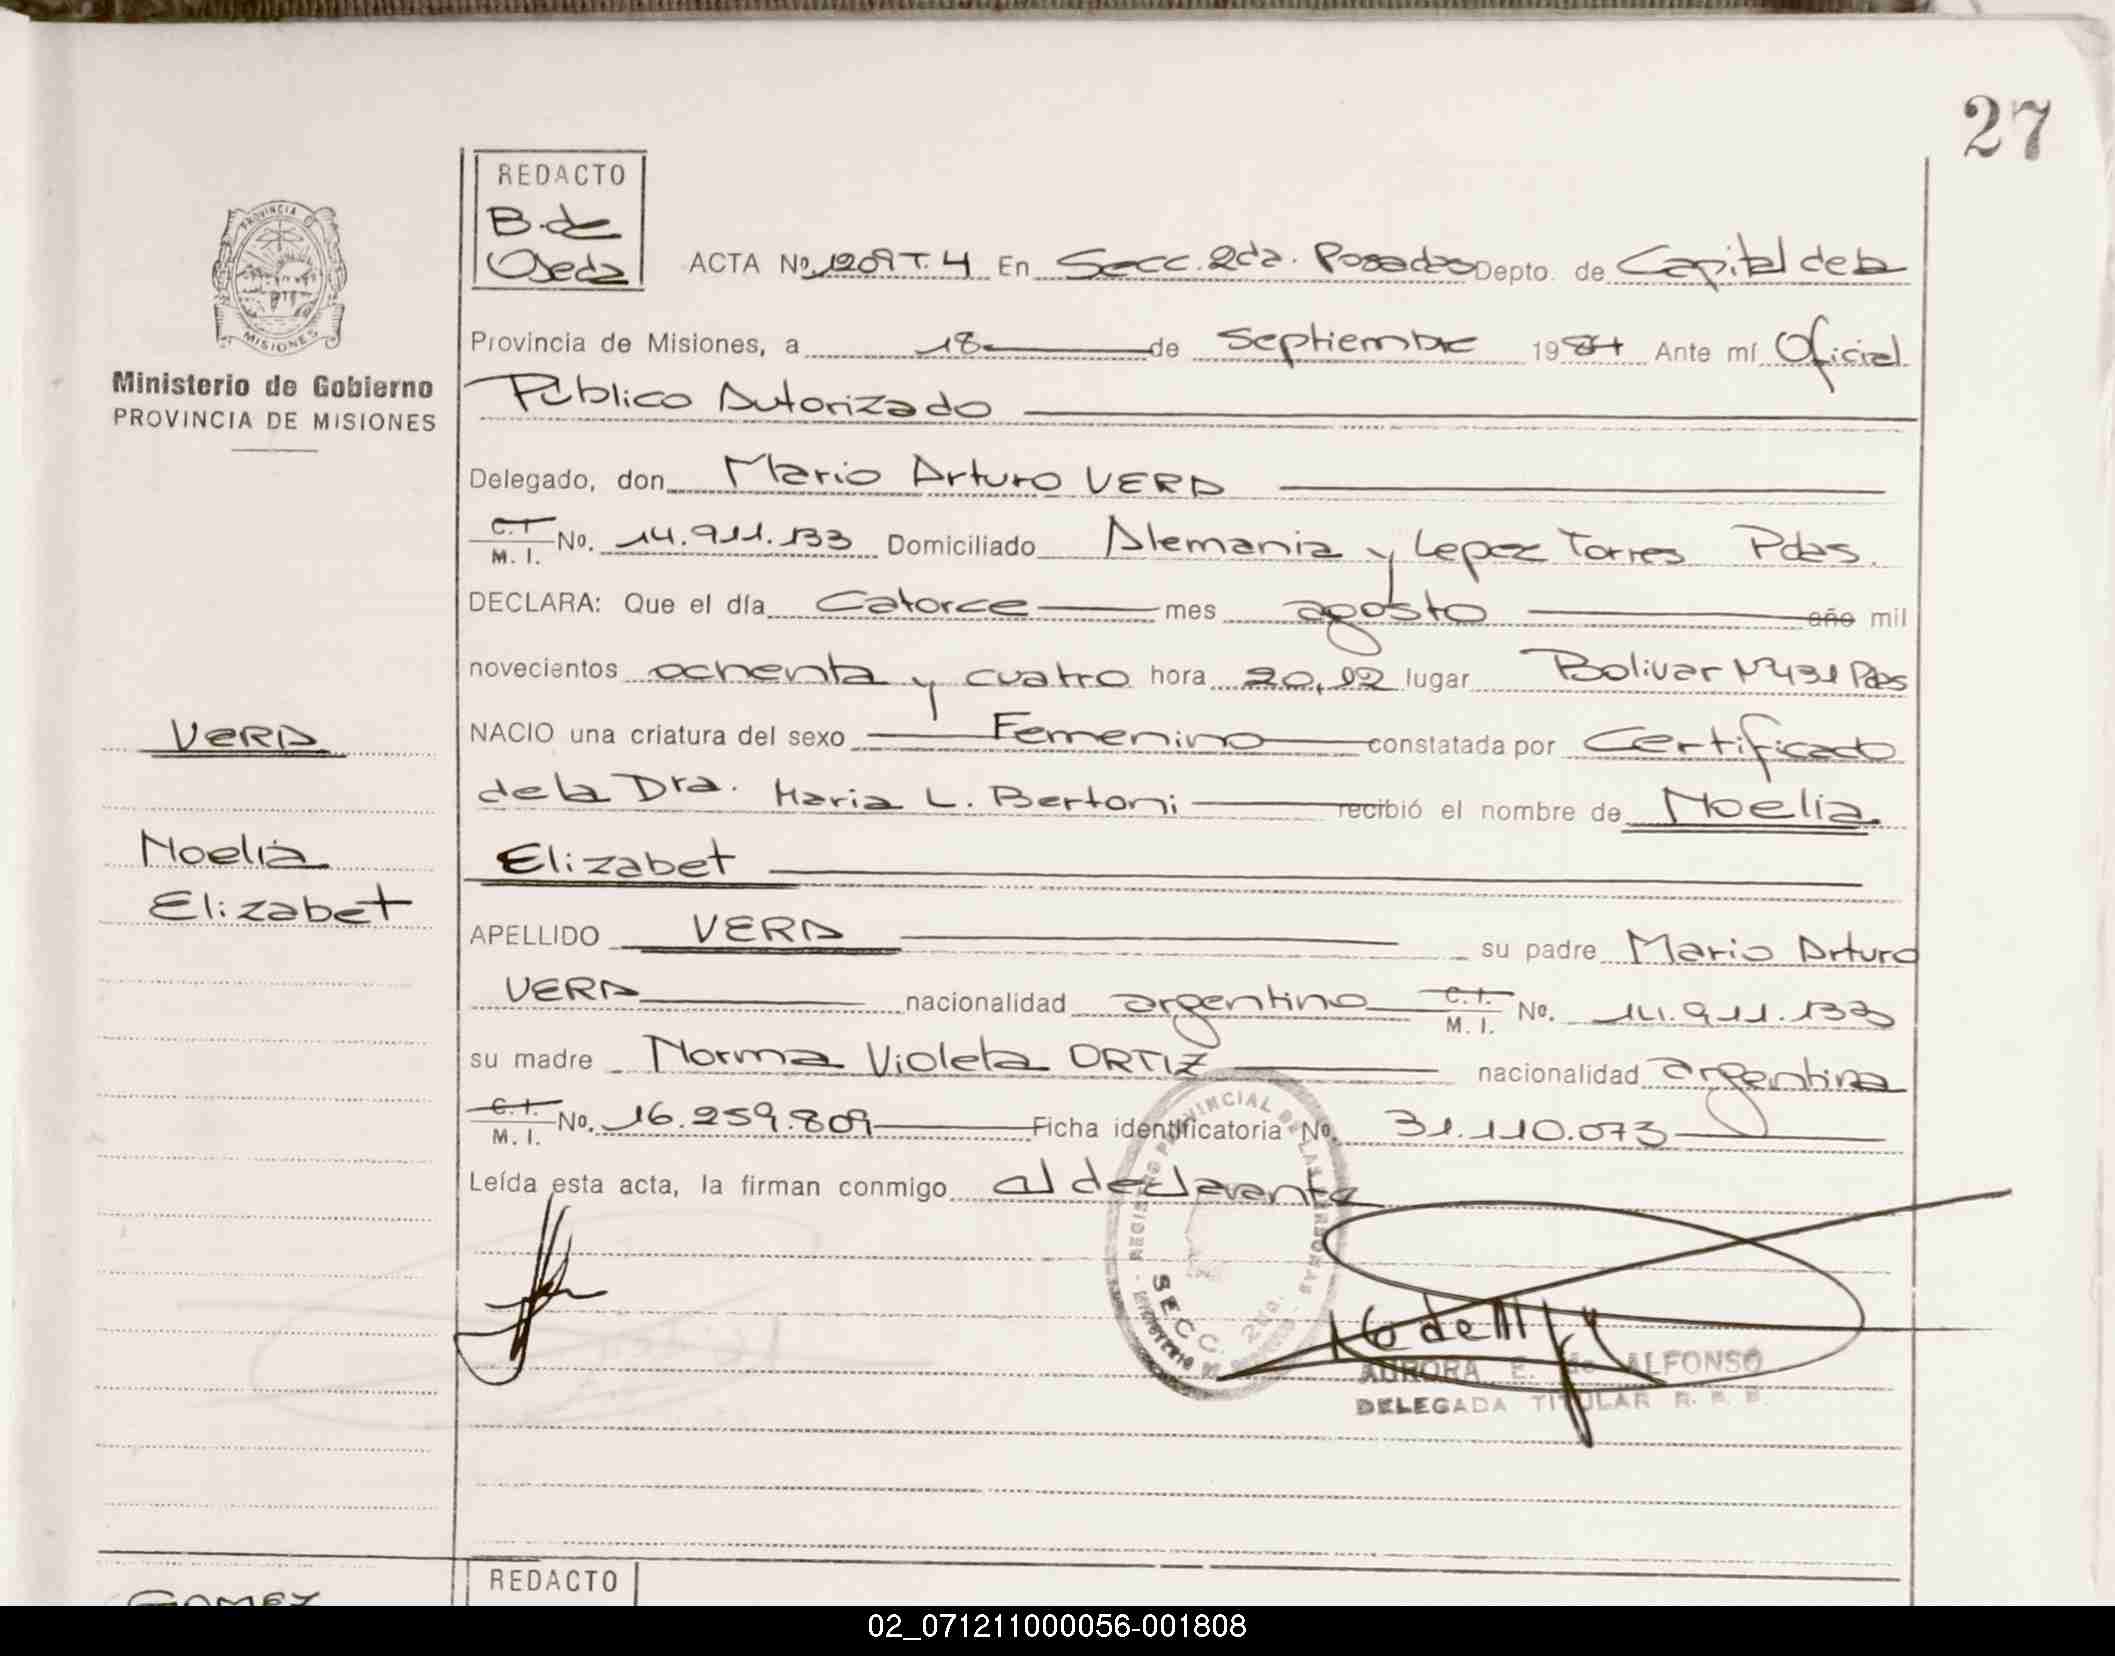 27
REDACTO
B. de
Ojeda
ACTA No. 1209 T. 4 En Secc. 2da. Posadas Depto. de Capital de la
Provincia de Misiones, a 18 de Septiembre 1984 Ante mí Oficial
Público Autorizado
Delegado, don Mario Arturo VERA
C.I. / M. I. No. 14.911.133 Domiciliado Alemania y Lopez Torres Pdas.
DECLARA: Que el día Catorce mes agosto año mil
novecientos ochenta y cuatro hora 20,02 lugar Bolivar Nº 431 Pdas
NACIO una criatura del sexo Femenino constatada por Certificado
de la Dra. Maria L. Bertoni recibió el nombre de Noelia
Elizabet
APELLIDO VERA su padre Mario Arturo
VERA nacionalidad argentino C.I. / M. I. No. 14.911.133
su madre Norma Violeta ORTIZ nacionalidad argentina
C.I. / M. I. No. 16.259.809 Ficha identificatoria No. 31.110.073
Leída esta acta, la firman conmigo al declarante
PROVINCIA D
MISIONES
Ministerio de Gobierno
PROVINCIA DE MISIONES
VERA
Noelia
Elizabet
REGISTRO PROVINCIAL DE LAS PERSONAS
SECC. 2da.
MINISTERIO DE GOBIERNO
AURORA E. de ALFONSO
DELEGADA TITULAR
GOMEZ
REDACTO
02_071211000056-001808